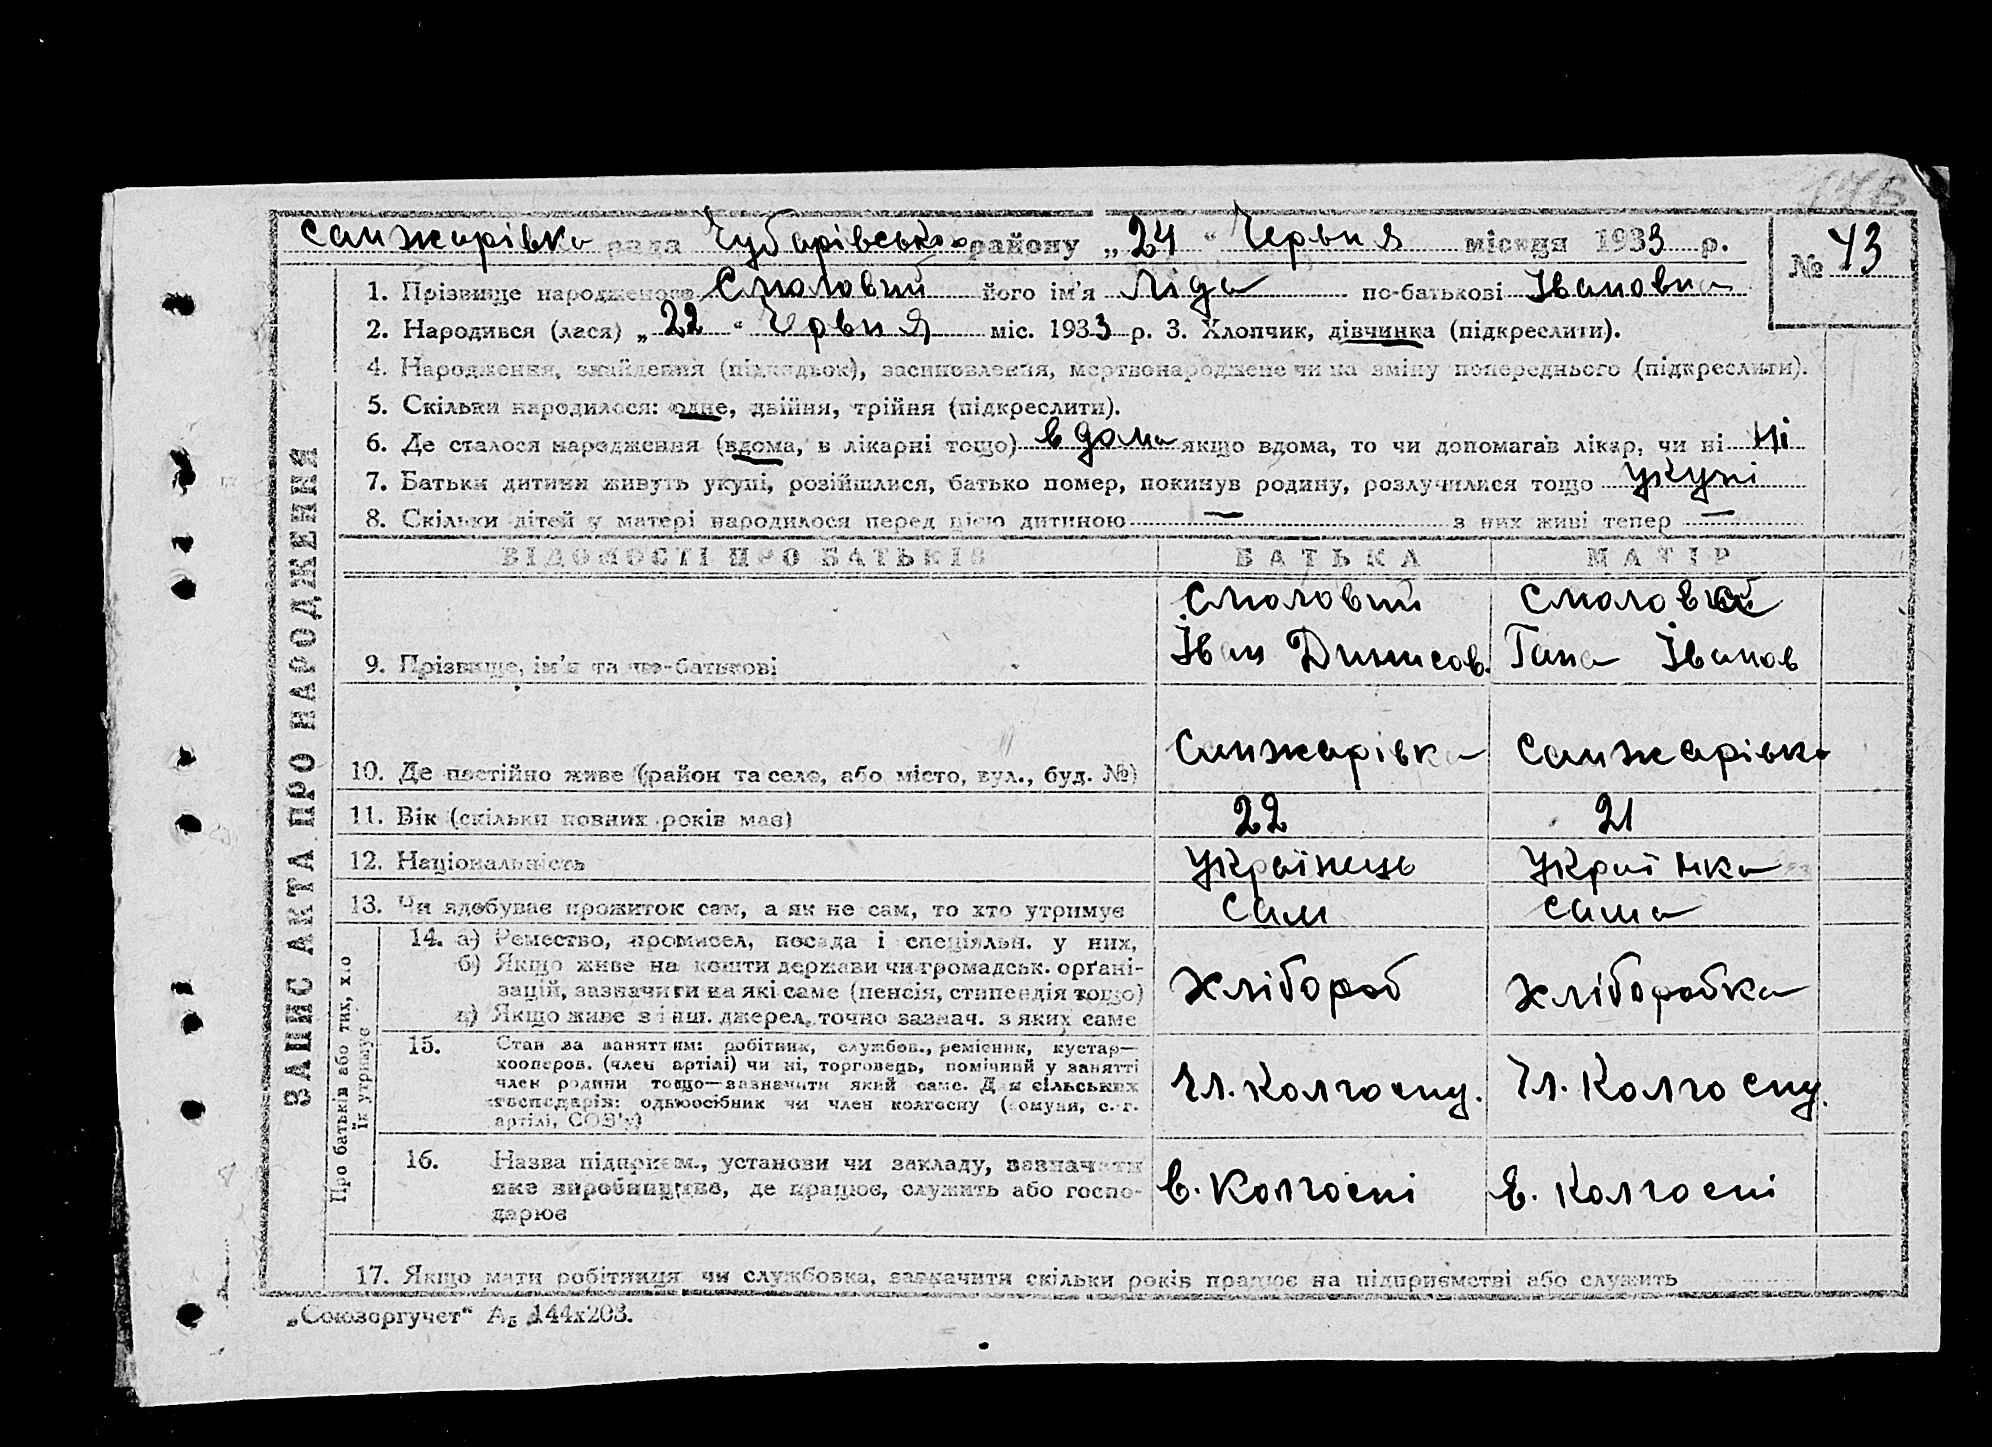 Санжарівка рада Чубарівського району „24“ Червня місяця 1933 р.
№ 43
1. Прізвище народженого Смоловий його ім'я Ліда по-батькові Івановна
2. Народився (лася) „22“ Чрвня міс. 1933 р. 3. Хлопчик, дівчинка (підкреслити).
4. Народження, знайдення (підкидьок), засиновлення, мертвонароджене чи на зміну попереднього (підкреслити).
5. Скільки народилося: одне, двійня, трійня (підкреслити).
6. Де сталося народження (вдома, в лікарні тощо) в дома якщо вдома, то чи допомагав лікар, чи ні Ні
7. Батьки дитини живуть укупі, розійшлися, батько помер, покинув родину, розлучилися тощо укупі
8. Скільки дітей у матері народилося перед цією дитиною — з них живі тепер —
ВІДОМОСТІ ПРО БАТЬКІВ БАТЬКА МАТІР
Смоловий Смоловой
9. Прізвище, ім'я та по-батькові Іван Динисов. Гана Іванов
10. Де постійно живе (район та село, або місто, вул., буд. №) Санжарівка Санжарівка
11. Вік (скільки повних років має) 22 21
12. Національність Українець Українка
13. Чи здобуває прожиток сам, а як не сам, то хто утримує Сам сама
14. а) Ремество, промисел, посада і спеціяльн. у них,
б) Якщо живе на кошти держави чи громадськ. орґані-
зацій, зазначити на які саме (пенсія, стипендія тощо) Хлібороб Хліборобка
в) Якщо живе з інш. джерел, точно зазнач. з яких саме
15. Стан за заняттям: робітник, службов., ремісник, кустар—
кооперов. (член артілі) чи ні, торговець, помічний у занятті
член родини тощо—зазначити який саме. Для сільських Чл. Колгоспу. Чл. Колгоспу.
господарів: одноосібник чи член колгоспу (комуни, с.-г.
артілі, СОЗ'у)
16. Назва підприєм., установи чи закладу, зазначити
яке виробництво, де працює, служить або госпо- в. Колгоспі в. Колгоспі
дарює
17. Якщо мати робітниця чи службовка, зазначити скільки років працює на підприємстві або служить
ЗАПИС АКТА ПРО НАРОДЖЕННЯ
Про батьків або тих, хто
їх утримує
„Союзоргучет“ А₅ 144х203.